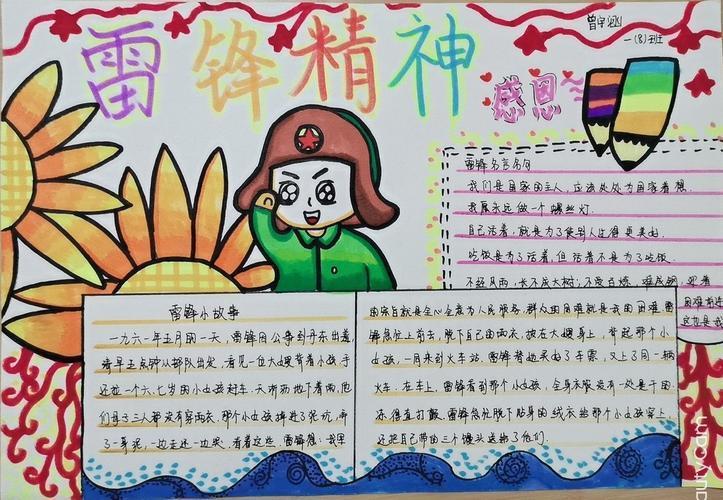 雷锋精神
感恩
曾宇
一(8)班
雷锋名言名句
我们是国家的主人,应该处处为国家着想.
我愿永远做一个螺丝钉.
自己活着,就是为了使别人过得更美好.
吃饭是为了活着,但活着不是为了吃饭.
不经风雨,长不成大树;不受百炼,难成钢.
困难
雷锋小故事
一九六一年五月的一天,雷锋因公事到丹东出差,
清早五点钟从部队出发,看见一位大嫂背着小孩,手
还拉一个六、七岁的小女孩赶车.天淅淅地下着雨,他
们母子三人都没有穿雨衣.那个小女孩掉进了泥坑,弄
了一身泥,一边走还一边哭.看着这些,雷锋想:我军
的宗旨就是全心全意为人民服务,群人的困难就是我的困难.雷
锋急忙上前去,脱下自己的雨衣,披在大嫂身上,背起那个小
女孩,一同来到火车站.雷锋替她买好了车票,又上了同一辆
火车.在车上,雷锋看到那个小女孩,全身衣服没有一处是干的.
冻得直打颤.雷锋急忙脱下贴身的线衣给那个小女孩穿上,
还把自己带的三个馒头送给了他们.